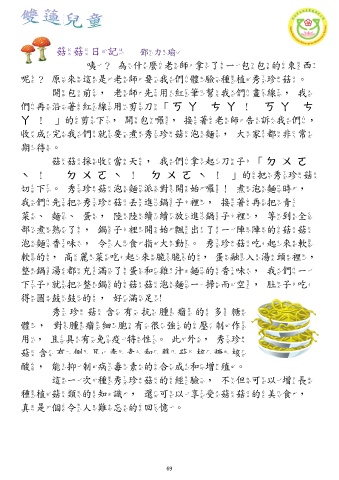 雙蓮兒童
菇菇日記 鄧力瑜
咦？為什麼老師拿了一包包的東西
呢？原來這是老師要我們體驗種植秀珍菇。
開包前，老師先用紅筆幫我們畫線，我
們再沿著紅線用剪刀「ㄎㄚ ㄘㄚ！ ㄎㄚ ㄘ
ㄚ！」的剪下，開包囉，接著老師告訴我們，
收成完我們就要煮秀珍菇泡麵，大家都非常
期待。
菇菇採收當天，我們拿起刀子，「ㄉㄨㄛ
ˋ！ ㄉㄨㄛˋ！ ㄉㄨㄛˋ！」的把秀珍菇
切下。秀珍菇泡麵派對開始囉！煮泡麵時，
我們先把秀珍菇丟進鍋子裡，接著再把青
菜、麵、蛋，陸陸續續放進鍋子裡，等到全
部煮熟了，鍋子裡開始飄出了一陣陣的菇菇
泡麵香味，令人食指大動。秀珍菇吃起來軟
軟的，高麗菜吃起來脆脆的，蛋融入湯頭裡，
整鍋湯都充滿了蛋和雞汁麵的香味，我們一
下子就把整鍋的菇菇泡麵一掃而空，肚子吃
得圓鼓鼓的，好滿足！
秀珍菇含有抗腫瘤的多醣
體，對腫瘤細胞有很強的壓制作
用，且具有免疫特性。此外，秀珍
菇含有側耳毒素和蘑菇核糖核
酸，能抑制病毒素的合成和增殖。
這一次種秀珍菇的經驗，不但可以增長
種植菇類的知識，還可以享受菇菇的美食，
真是個令人難忘的回憶。
69